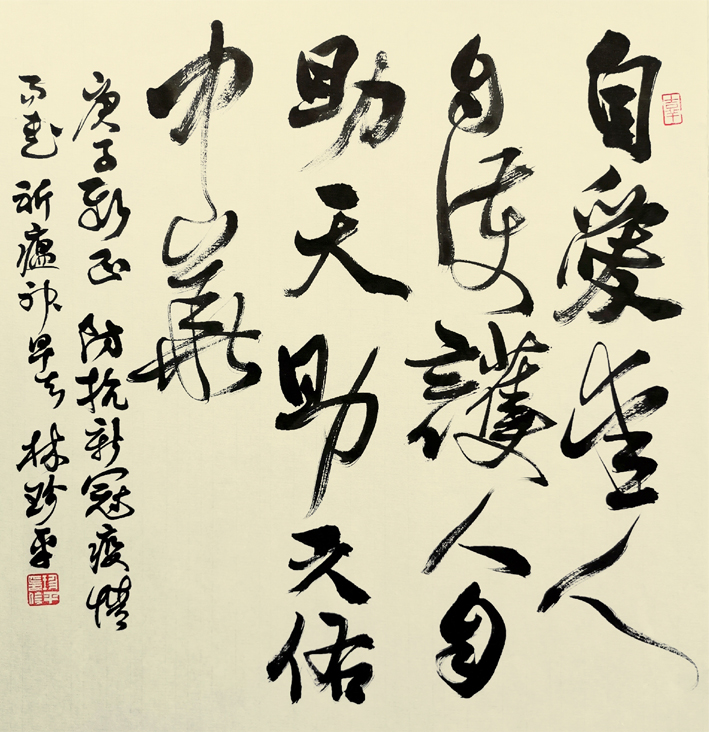 自愛愛人
自護護人自
助天助天佑
中華
庚子新正 防抗新冠疫情
祈瘟神早去 林珍平